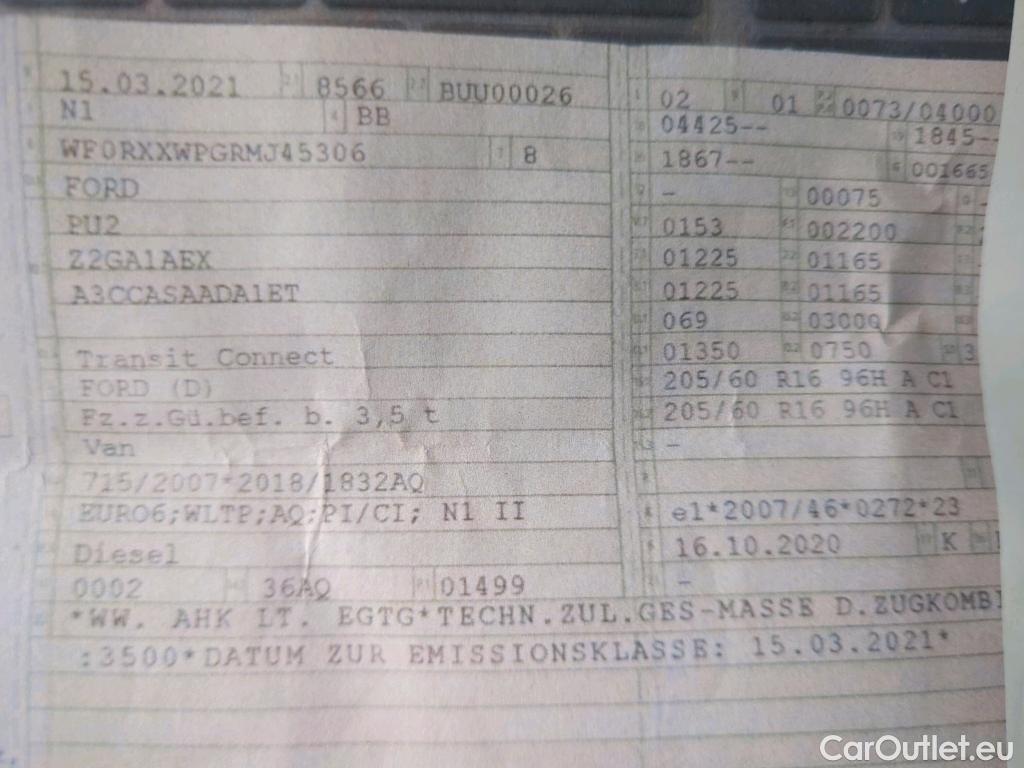 15.03.2021 8566 BUU00026
N1 BB
WF0RXXWPGRMJ45306 8
FORD
PU2
Z2GA1AEX
A3CCASAADA1ET
Transit Connect
FORD (D)
Fz.z.Gü.bef. b. 3,5 t
Van
715/2007*2018/1832AQ
EURO6;WLTP;AQ:PI/CI; N1 II
Diesel
0002 36AQ 01499
02 01 0073/04000
04425-- 1845--
1867-- 001665
- 00075
0153 002200
01225 01165
01225 01165
069 03000
01350 0750 3
205/60 R16 96H A C1
205/60 R16 96H A C1
-
e1*2007/46*0272*23
16.10.2020 K
-
*WW. AHK LT. EGTG*TECHN.ZUL.GES-MASSE D.ZUGKOMBI
:3500*DATUM ZUR EMISSIONSKLASSE: 15.03.2021*
CarOutlet.eu